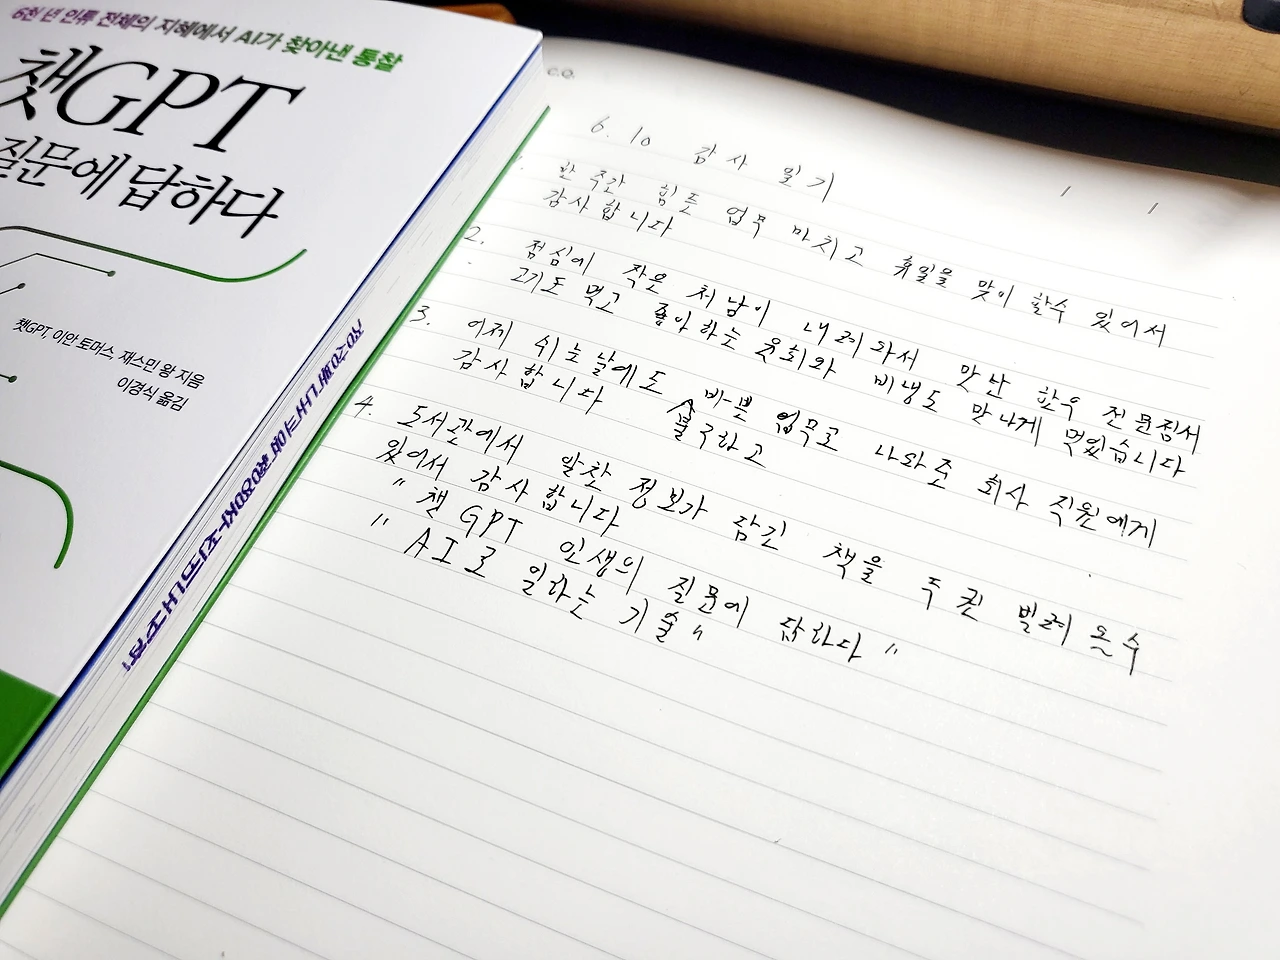 6천 년 인류 전체의 지혜에서 AI가 찾아낸 통찰
챗GPT
질문에 답하다
챗GPT, 이안 토머스, 재스민 왕 지음
이경식 옮김
C.Q.
6. 10 감사 일기
한 주간 힘든 업무 마치고 휴일을 맞이 할수 있어서
감사합니다
2. 점심에 작은 처남이 내려와서 맛난 한우 전문점서
고기도 먹고 좋아하는 육회와 비냉도 맛나게 먹었습니다
3. 어제 쉬는날에도 바쁜 업무로 나와준 회사 직원에게
감사합니다 불구하고
4. 도서관에서 알찬 정보가 담긴 책을 두권 빌려 올수
있어서 감사합니다
" 챗 GPT 인생의 질문에 답하다 "
" AI로 일하는 기술"